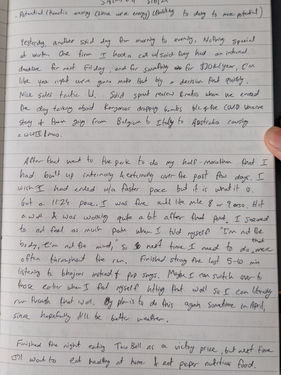 - Potential/kinetic energy (done use energy) (building to doing to more potential)
Yesterday, another solid day from morning to evening. Nothing special
at work. One firm I had a call w/ said they had an internal
deadline for next Friday, and for something for $10k/year, I'm
like yea right we're gonna make that by a decision that quickly.
Nice sales tactic lol. Said spent review & notes when we ended
the day talking about kangaroos dropping bombs b/c of the COVID universe
story of these guys from Belgium to Italy to Australia carrying
a
After that went to the park to do my half-marathon that I
had built up internally & externally over the past few days. I
wish I had ended w/ a faster pace but it is what it is.
Got a 11:24 pace. I was fine until like mile 8 or 9 oooo. Hit
a wall. & was walking quite a bit after that point, I seemed
to not feel as much pain when I told myself "I'm not the
body, I'm not the mind," so next time I need to do that more
often throughout the run. Finished strong the last 5-10 min
listening to bhajans instead of pop songs. Maybe I can switch over to
those earlier when I feel myself hitting that wall so I can literally
run through that wall. My plan is to do this again sometime in April,
since hopefully it'll be better weather.
Finished the night eating Taco Bell as a victory prize, but next time
I'll want to eat healthy at home & eat proper nutritious food.